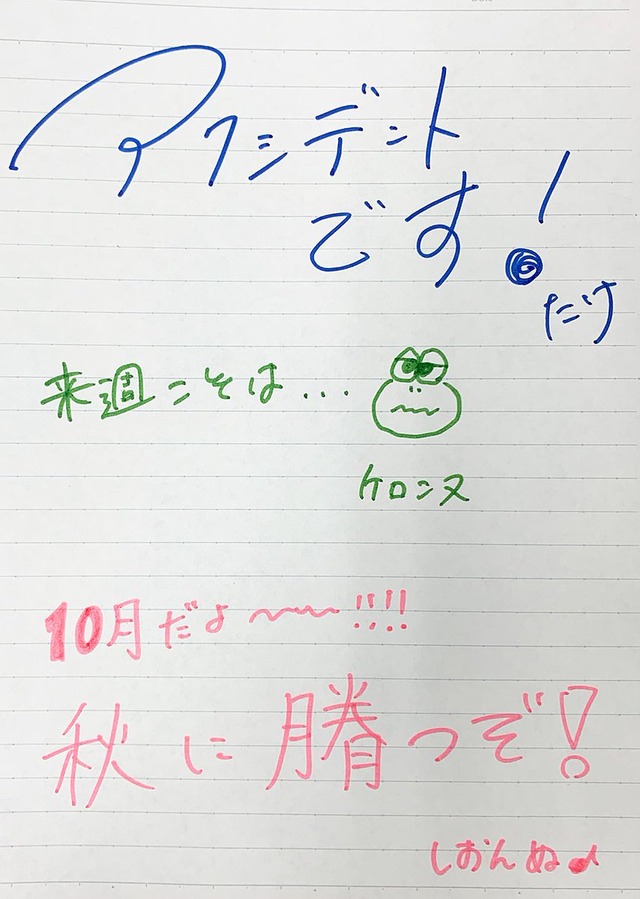 アクシデント
です!
だけ
来週こそは...
ケロンヌ
10月だよ〜〜!!!!
秋に勝つぞ!
しおんぬ♪